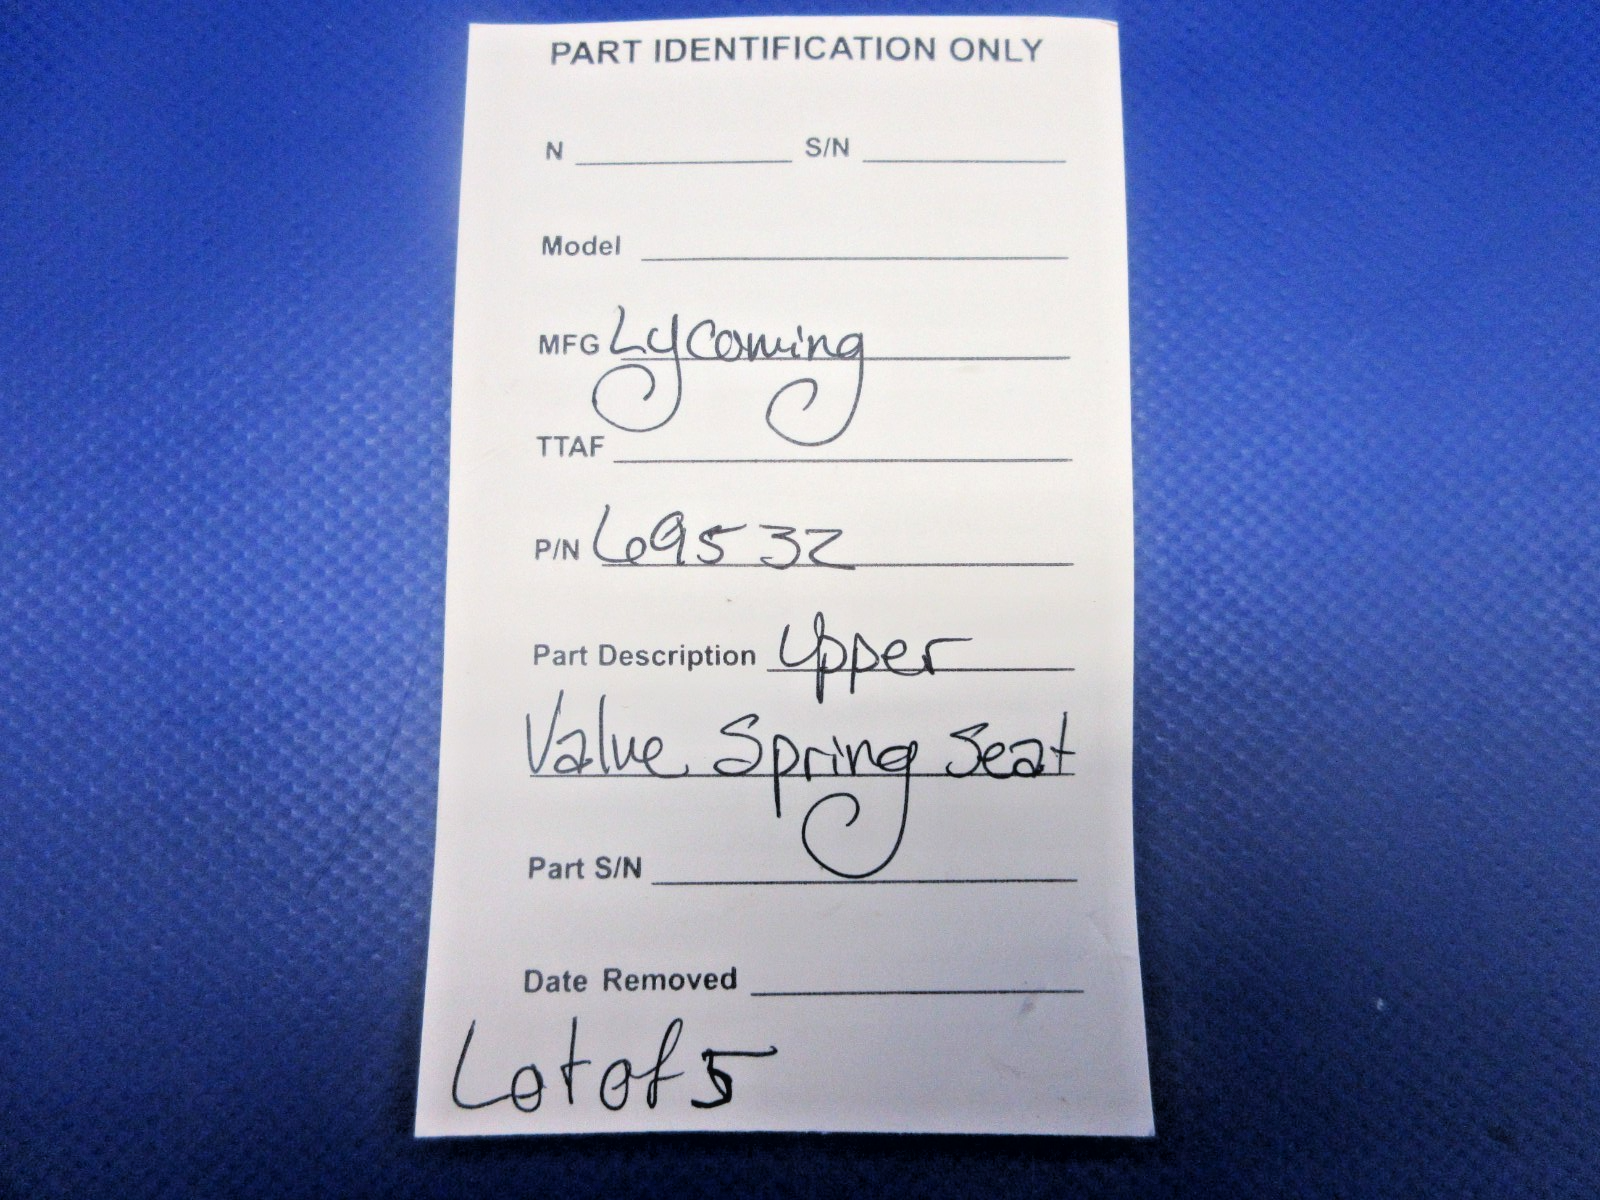 PART IDENTIFICATION ONLY
N S/N
Model
MFG Lycoming
TTAF
P/N 69532
Part Description Upper
Valve Spring Seat
Part S/N
Date Removed
Lot of 5